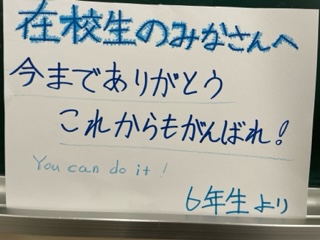 在校生のみなさんへ
今までありがとう
これからもがんばれ!
You can do it!
6年生より